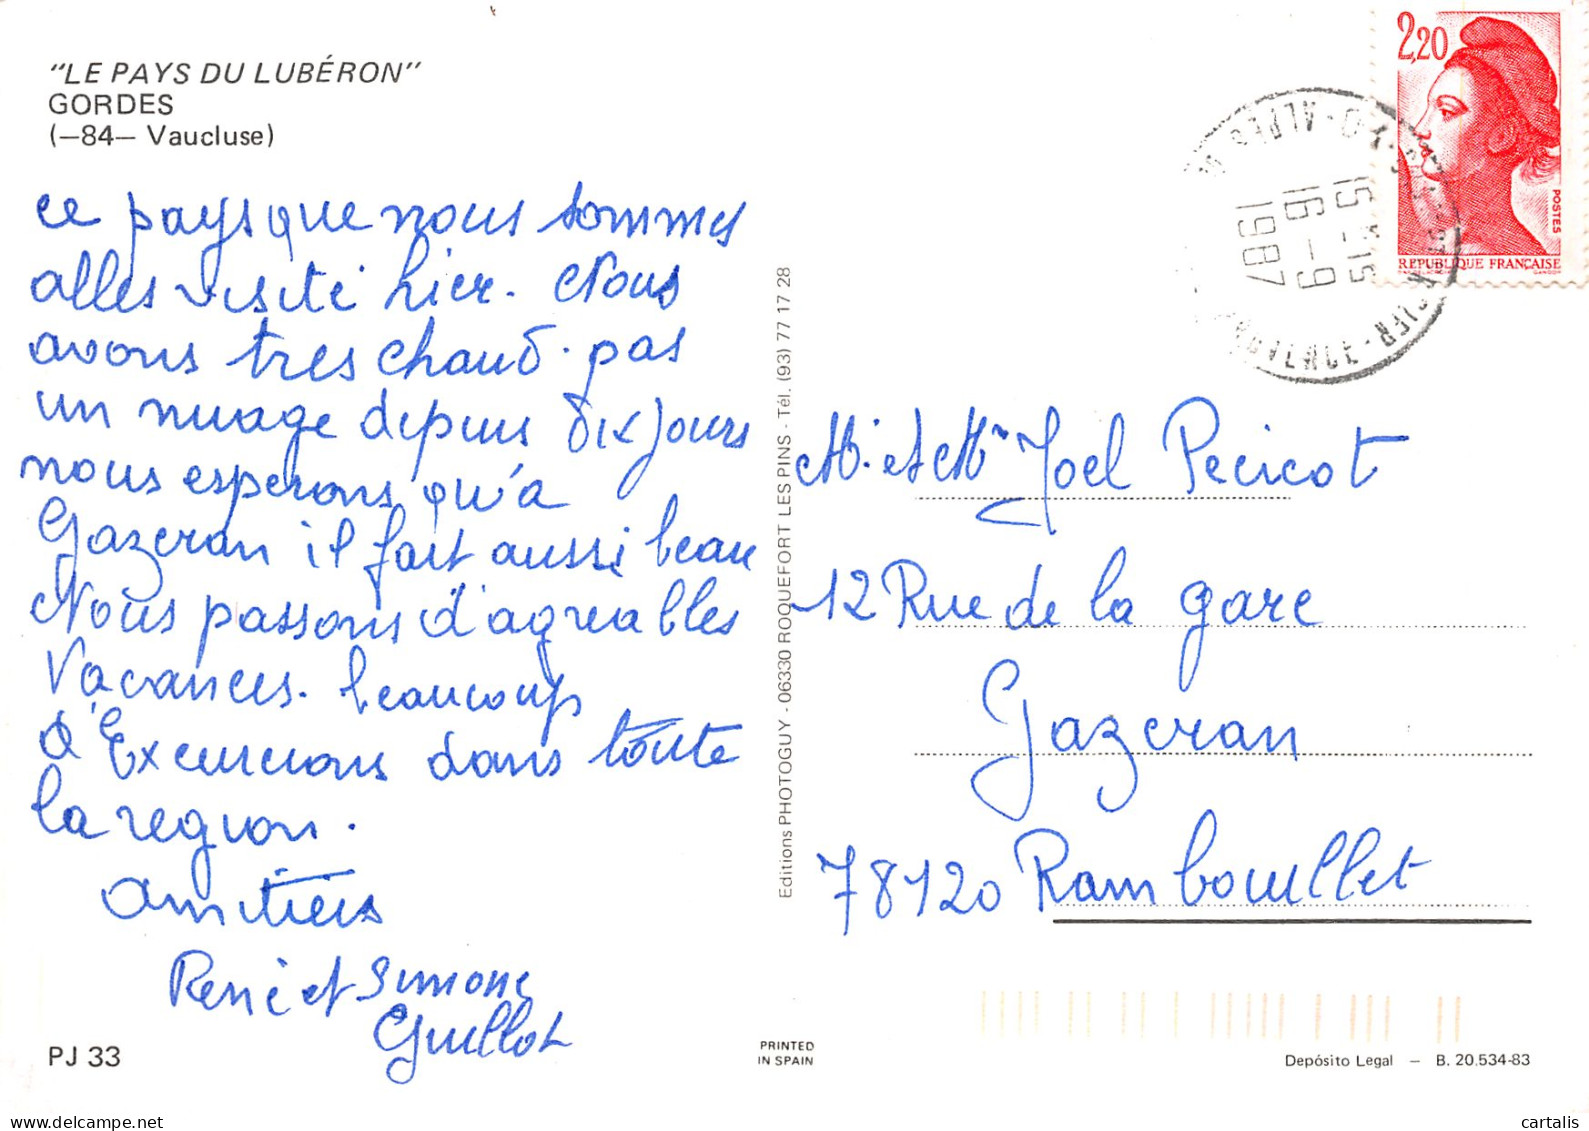 "LE PAYS DU LUBÉRON"
GORDES
(—84— Vaucluse)
ce pays que nous sommes
alles visité hier. Nous
avons tres chaud. pas
un nuage depuis dix jours
nous esperons qu'a
Gazeran il fait aussi beau
Nous passons d'agreables
Vacances. beaucoup
d'Excursions dans toute
la region.
Amitiés
René et Simone
Guillot
PJ 33
Editions PHOTOGUY - 06330 ROQUEFORT LES PINS - Tél. (93) 77 17 28
PRINTED
IN SPAIN
2,20
POSTES
REPUBLIQUE FRANÇAISE
GANDON
15 H 15
16 - 9
1987
M. et Mme Joel Pecicot
12 Rue de la gare
Gazeran
78120 Rambouillet
Depósito Legal — B. 20.534-83
cartalis